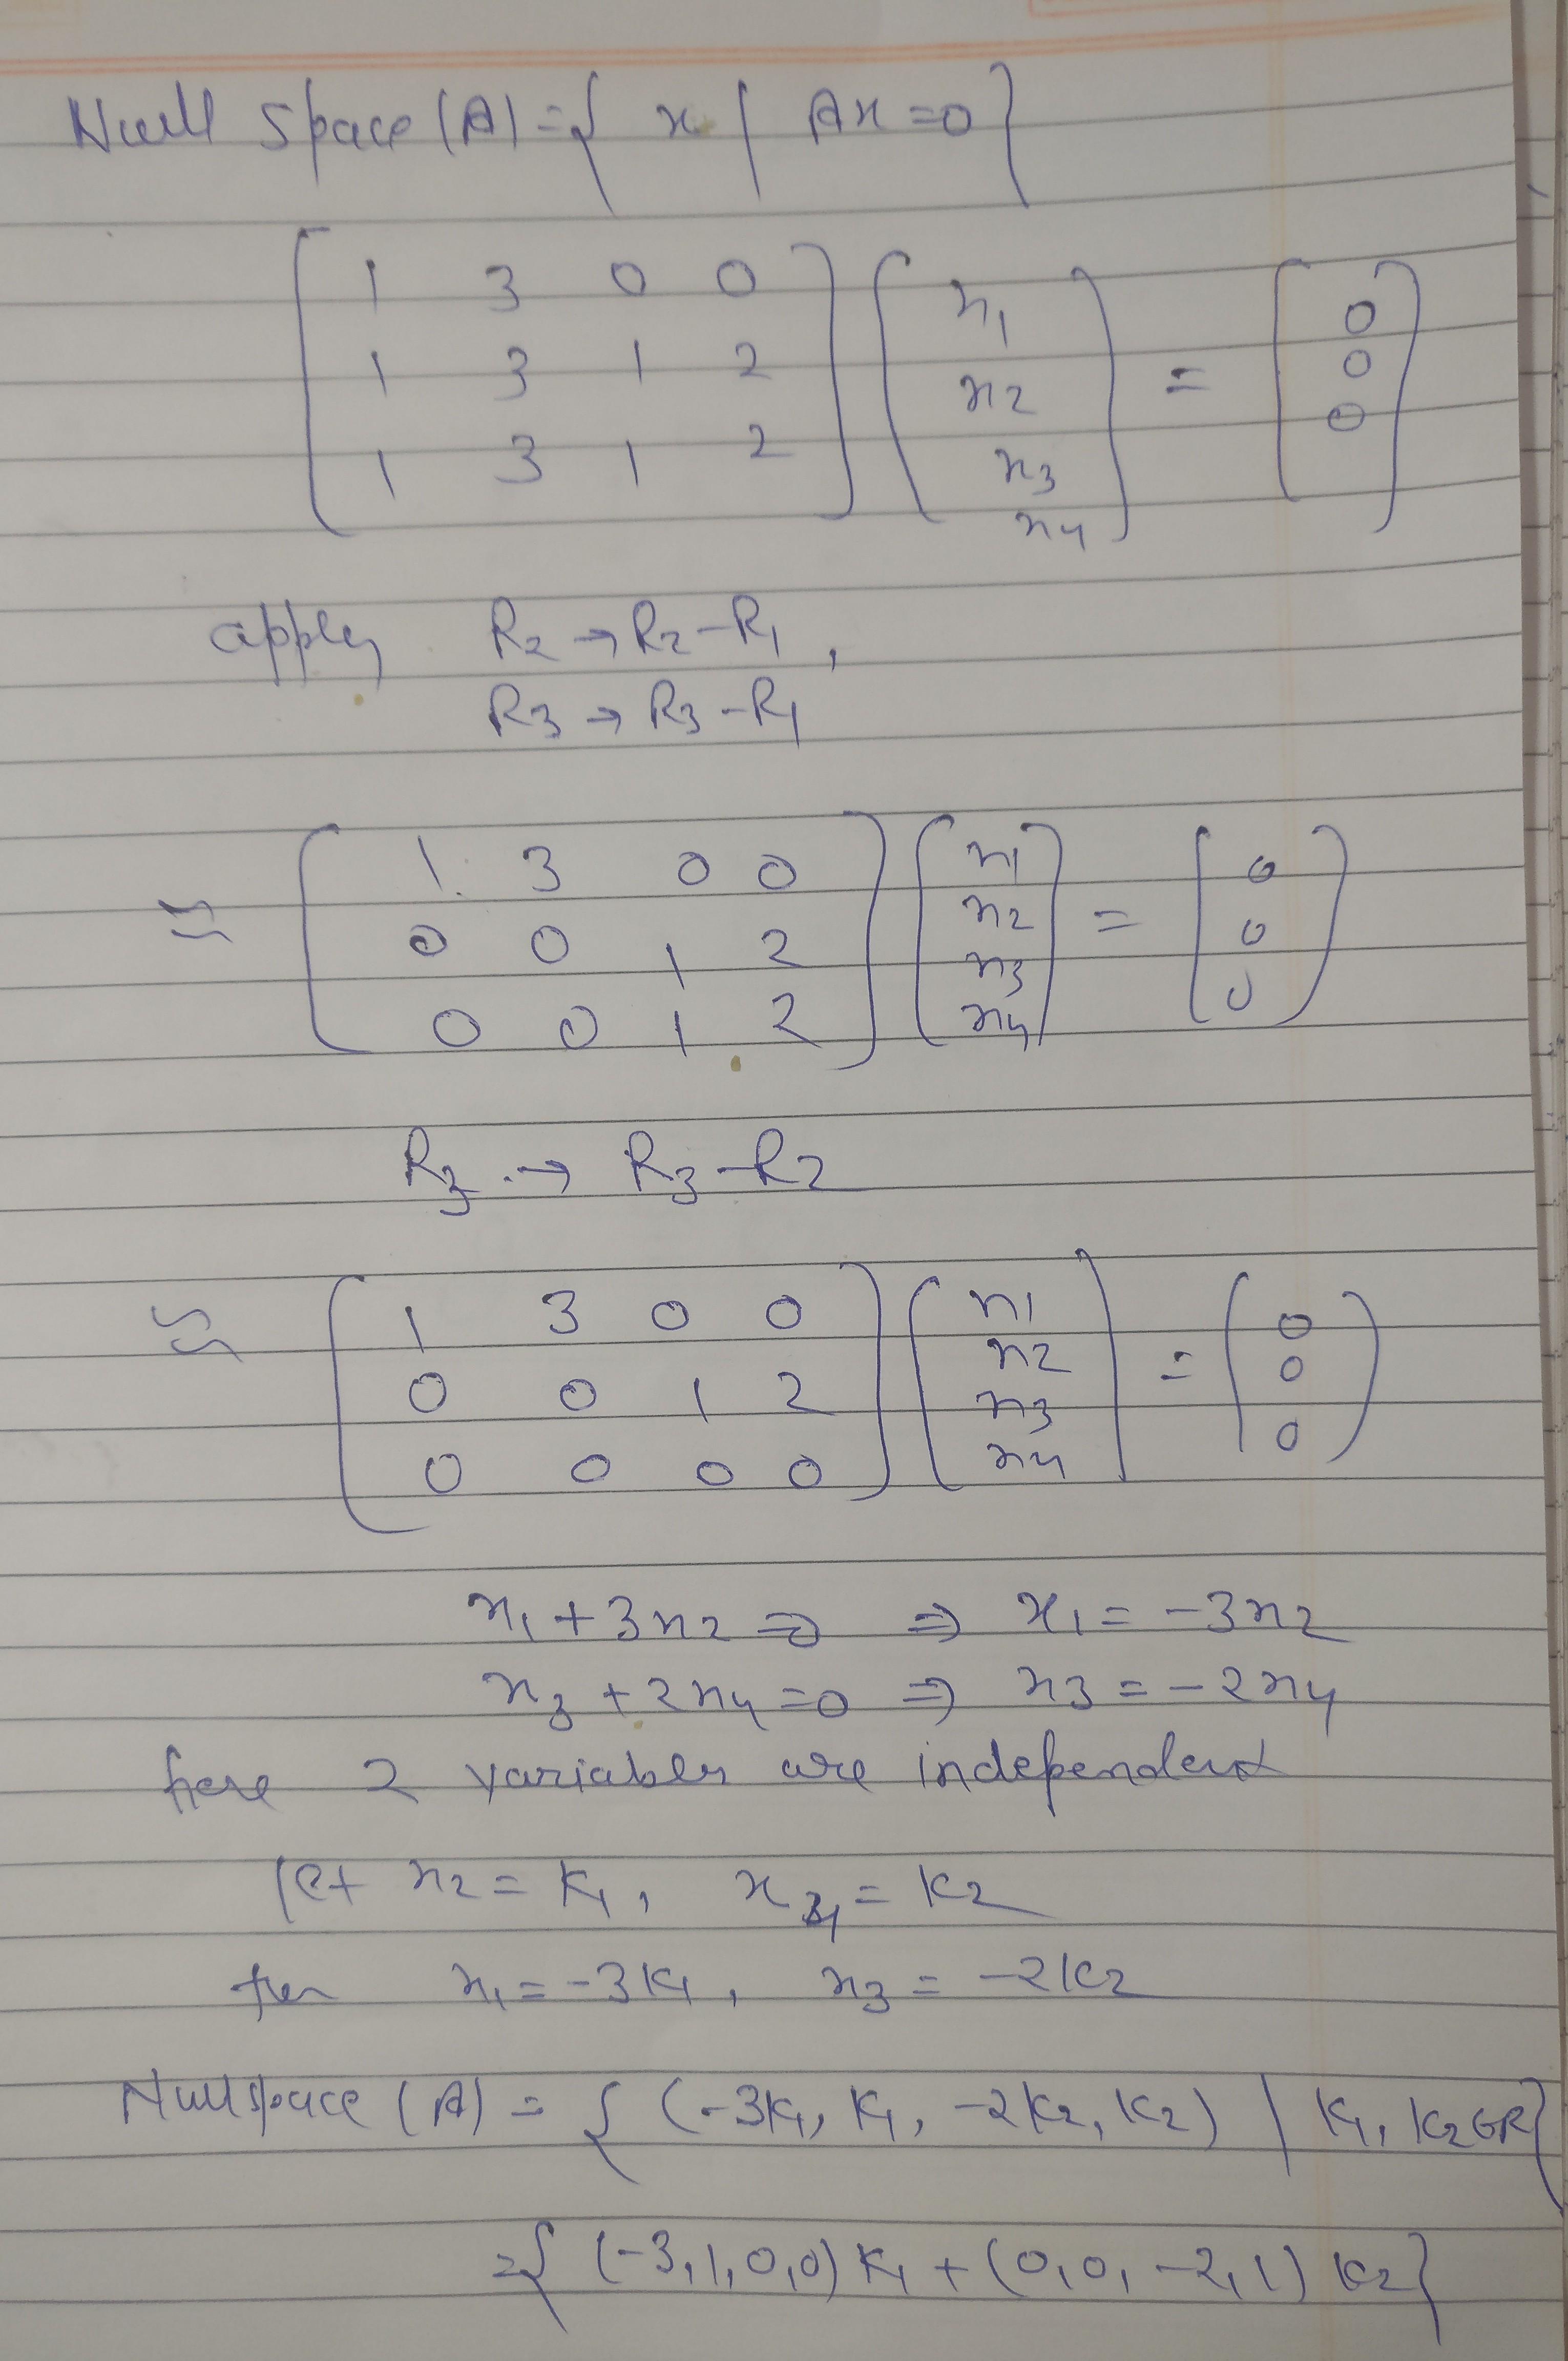 Null Space (A) = { x | Ax = 0 }
[ 1 3 0 0 ] [ x1 ] = [ 0 ]
[ 1 3 1 2 ] [ x2 ] [ 0 ]
[ 1 3 1 2 ] [ x3 ] [ 0 ]
[ x4 ]
apply R2 → R2 - R1 ,
R3 → R3 - R1
≈ [ 1 3 0 0 ] [ x1 ] = [ 0 ]
[ 0 0 1 2 ] [ x2 ] [ 0 ]
[ 0 0 1 2 ] [ x3 ] [ 0 ]
[ x4 ]
R3 → R3 - R2
≈ [ 1 3 0 0 ] [ x1 ] = [ 0 ]
[ 0 0 1 2 ] [ x2 ] [ 0 ]
[ 0 0 0 0 ] [ x3 ] [ 0 ]
[ x4 ]
x1 + 3x2 = 0 ⇒ x1 = -3x2
x3 + 2x4 = 0 ⇒ x3 = -2x4
here 2 variables are independent
let x2 = K1, x4 = K2
then x1 = -3K1, x3 = -2K2
Nullspace (A) = { (-3K1, K1, -2K2, K2) | K1, K2 ∈ R }
= { (-3,1,0,0) K1 + (0,0,-2,1) K2 }